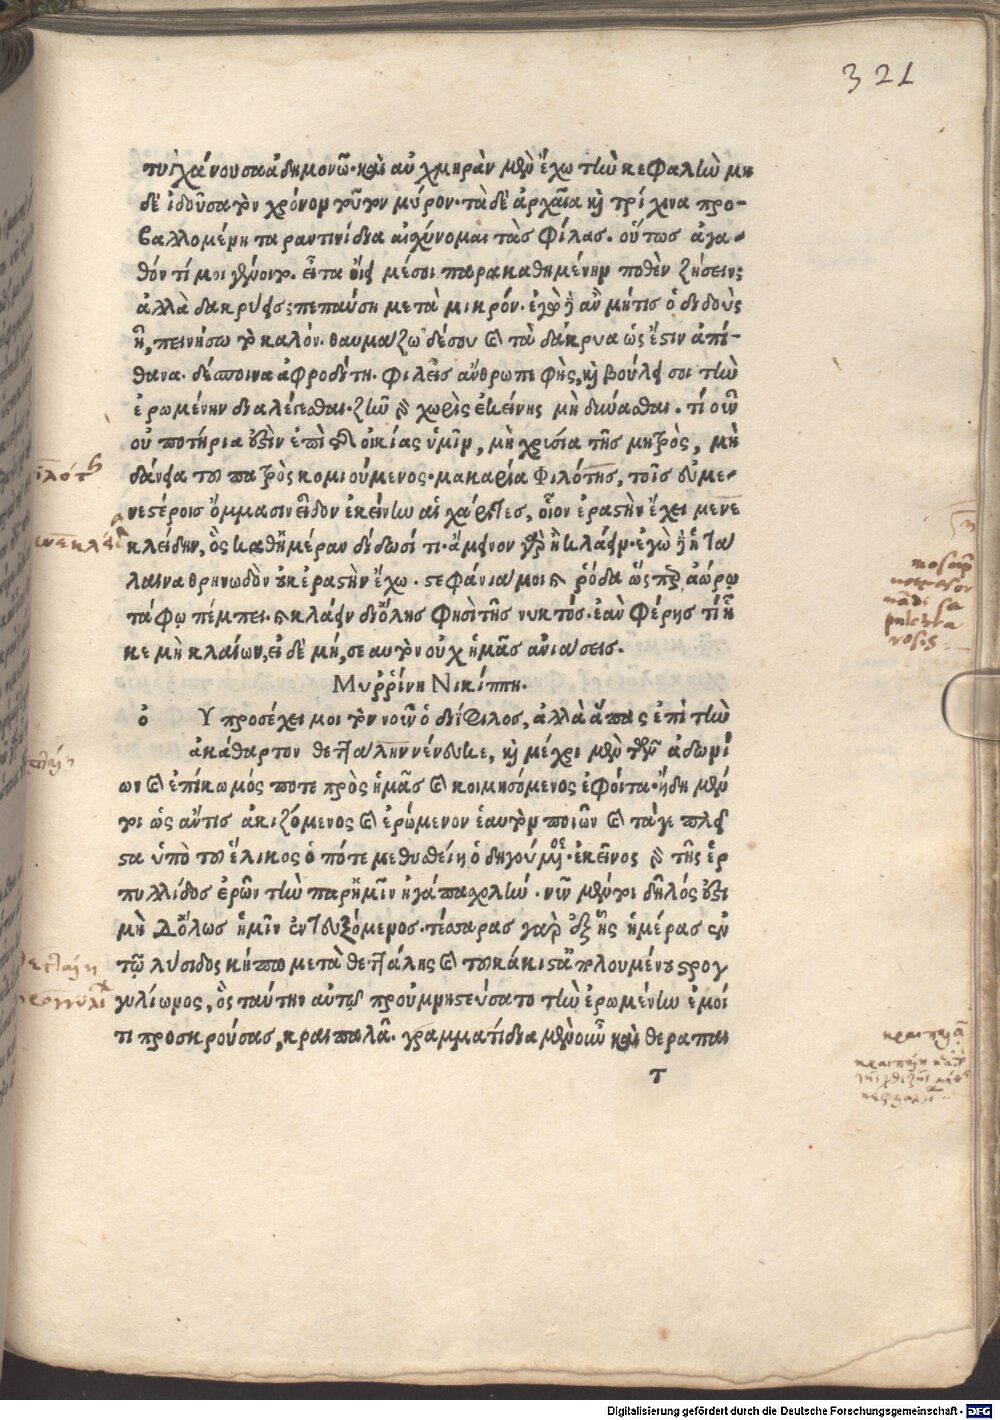 321
τυγχάνουσα ἀδημονῶ· καὶ αὐχμηρὰν μὲν ἔχω τὴν κεφαλὴν μη
δὲ ἰδοῦσα τὸν χρόνον τοῦτον μύρον· τὰ δὲ ἀρχαῖα καὶ τρίχινα προ-
βαλλομένη ταραντινίδια αἰσχύνομαι τὰς φίλας. οὕτως ἀγα-
θόν τί μοι γένοιτο. εἶτα οἴει μέσοι παρακαθημένην ποθὲν ζήσειν;
ἀλλὰ δακρύεις; πεπαύσῃ μετὰ μικρόν. ἐγὼ δὲ ἂν μήτις ὁ διδοὺς
ᾖ, πεινήσω τὸ καλόν. θαυμάζω δέ σου καὶ τὰ δάκρυα ὡς ἔστιν ἀπί-
θανα. δέσποινα ἀφροδίτη. φιλεῖς ἄνθρωπε φὴς, καὶ βούλει σοι τὴν
ἐρωμένην διαλέγεσθαι. ζῆν γὰρ χωρὶς ἐκείνης μὴ δύνασθαι. τί οὖν
οὐ ποτήρια ἐστὶν ἐπὶ τῆς οἰκίας ὑμῖν, μὴ χρυσία τῆς μητρὸς, μὴ
δάνεια τοῦ πατρὸς κομιούμενος. μακαρία φιλότης, τοῖς εὐμε-
νεστέροις ὄμμασιν εἶδον ἐκείνην αἱ χάριτες, οἷον ἐραστὴν ἔχει μενε
κλείδην, ὃς καθ' ἡμέραν δίδωσί τι. ἄμεινον γὰρ ἢ κλάειν. ἐγὼ δὲ ἡ τα
λαινα θρηνωδὸν οὐκ ἐραστὴν ἔχω. στεφάνια μοι καὶ ῥόδα ὥσπερ ἀώρῳ
τάφῳ πέμπει. καὶ κλάειν δι' ὅλης φησὶ τῆς νυκτός. ἐὰν φέρῃς τί ἧ
κε μὴ κλαίων, εἰ δὲ μή, σεαυτὸν οὐχ ἡμᾶς ἀνιάσεις.
Μυρρίνη Νικίππῃ.
ὁ Υ προσέχει μοι τὸν νοῦν ὁ δίφιλος, ἀλλὰ ἅπας ἐπὶ τὴν
ἀκάθαρτον θετταλὴν νένευκε, καὶ μέχρι μὲν τῶν ἀδωνί
ων καὶ ἐπίκωμός ποτε πρὸς ἡμᾶς καὶ κοιμησόμενος ἐφοίτα. ἤδη μέν
τοι ὡς ἄν τις ἀκιζόμενος καὶ ἐρώμενον ἑαυτὸν ποιῶν καὶ τά γε πλεῖ
στα ὑπὸ τοῦ ἕλικος ὁ πότε μεθυσθείη ὁδηγούμενος. ἐκεῖνος γὰρ τῆς ἑρ
πυλλίδος ἐρῶν τὴν παρ' ἡμῖν ἠγάπα σχολήν. νῦν μέντοι δῆλός ἐστι
μὴ δ' ὅλως ἡμῖν ἐντευξόμενος. τέσσαρας γὰρ ἑξῆς ἡμέρας ἐν
τῷ λύσιδος κήπῳ μετὰ θετταλῆς καὶ τοῦ κάκιστα ἀπολουμένου στρογ
γυλίωνος, ὃς ταύτην αὐτῷ προὐμνηστεύσατο τὴν ἐρωμένην ἐμοί
τι προσκρούσας, κραιπαλᾷ. γραμματίδια μὲν οὖν καὶ θεραπαι
τ
Digitalisierung gefördert durch die Deutsche Forschungsgemeinschaft - DFG